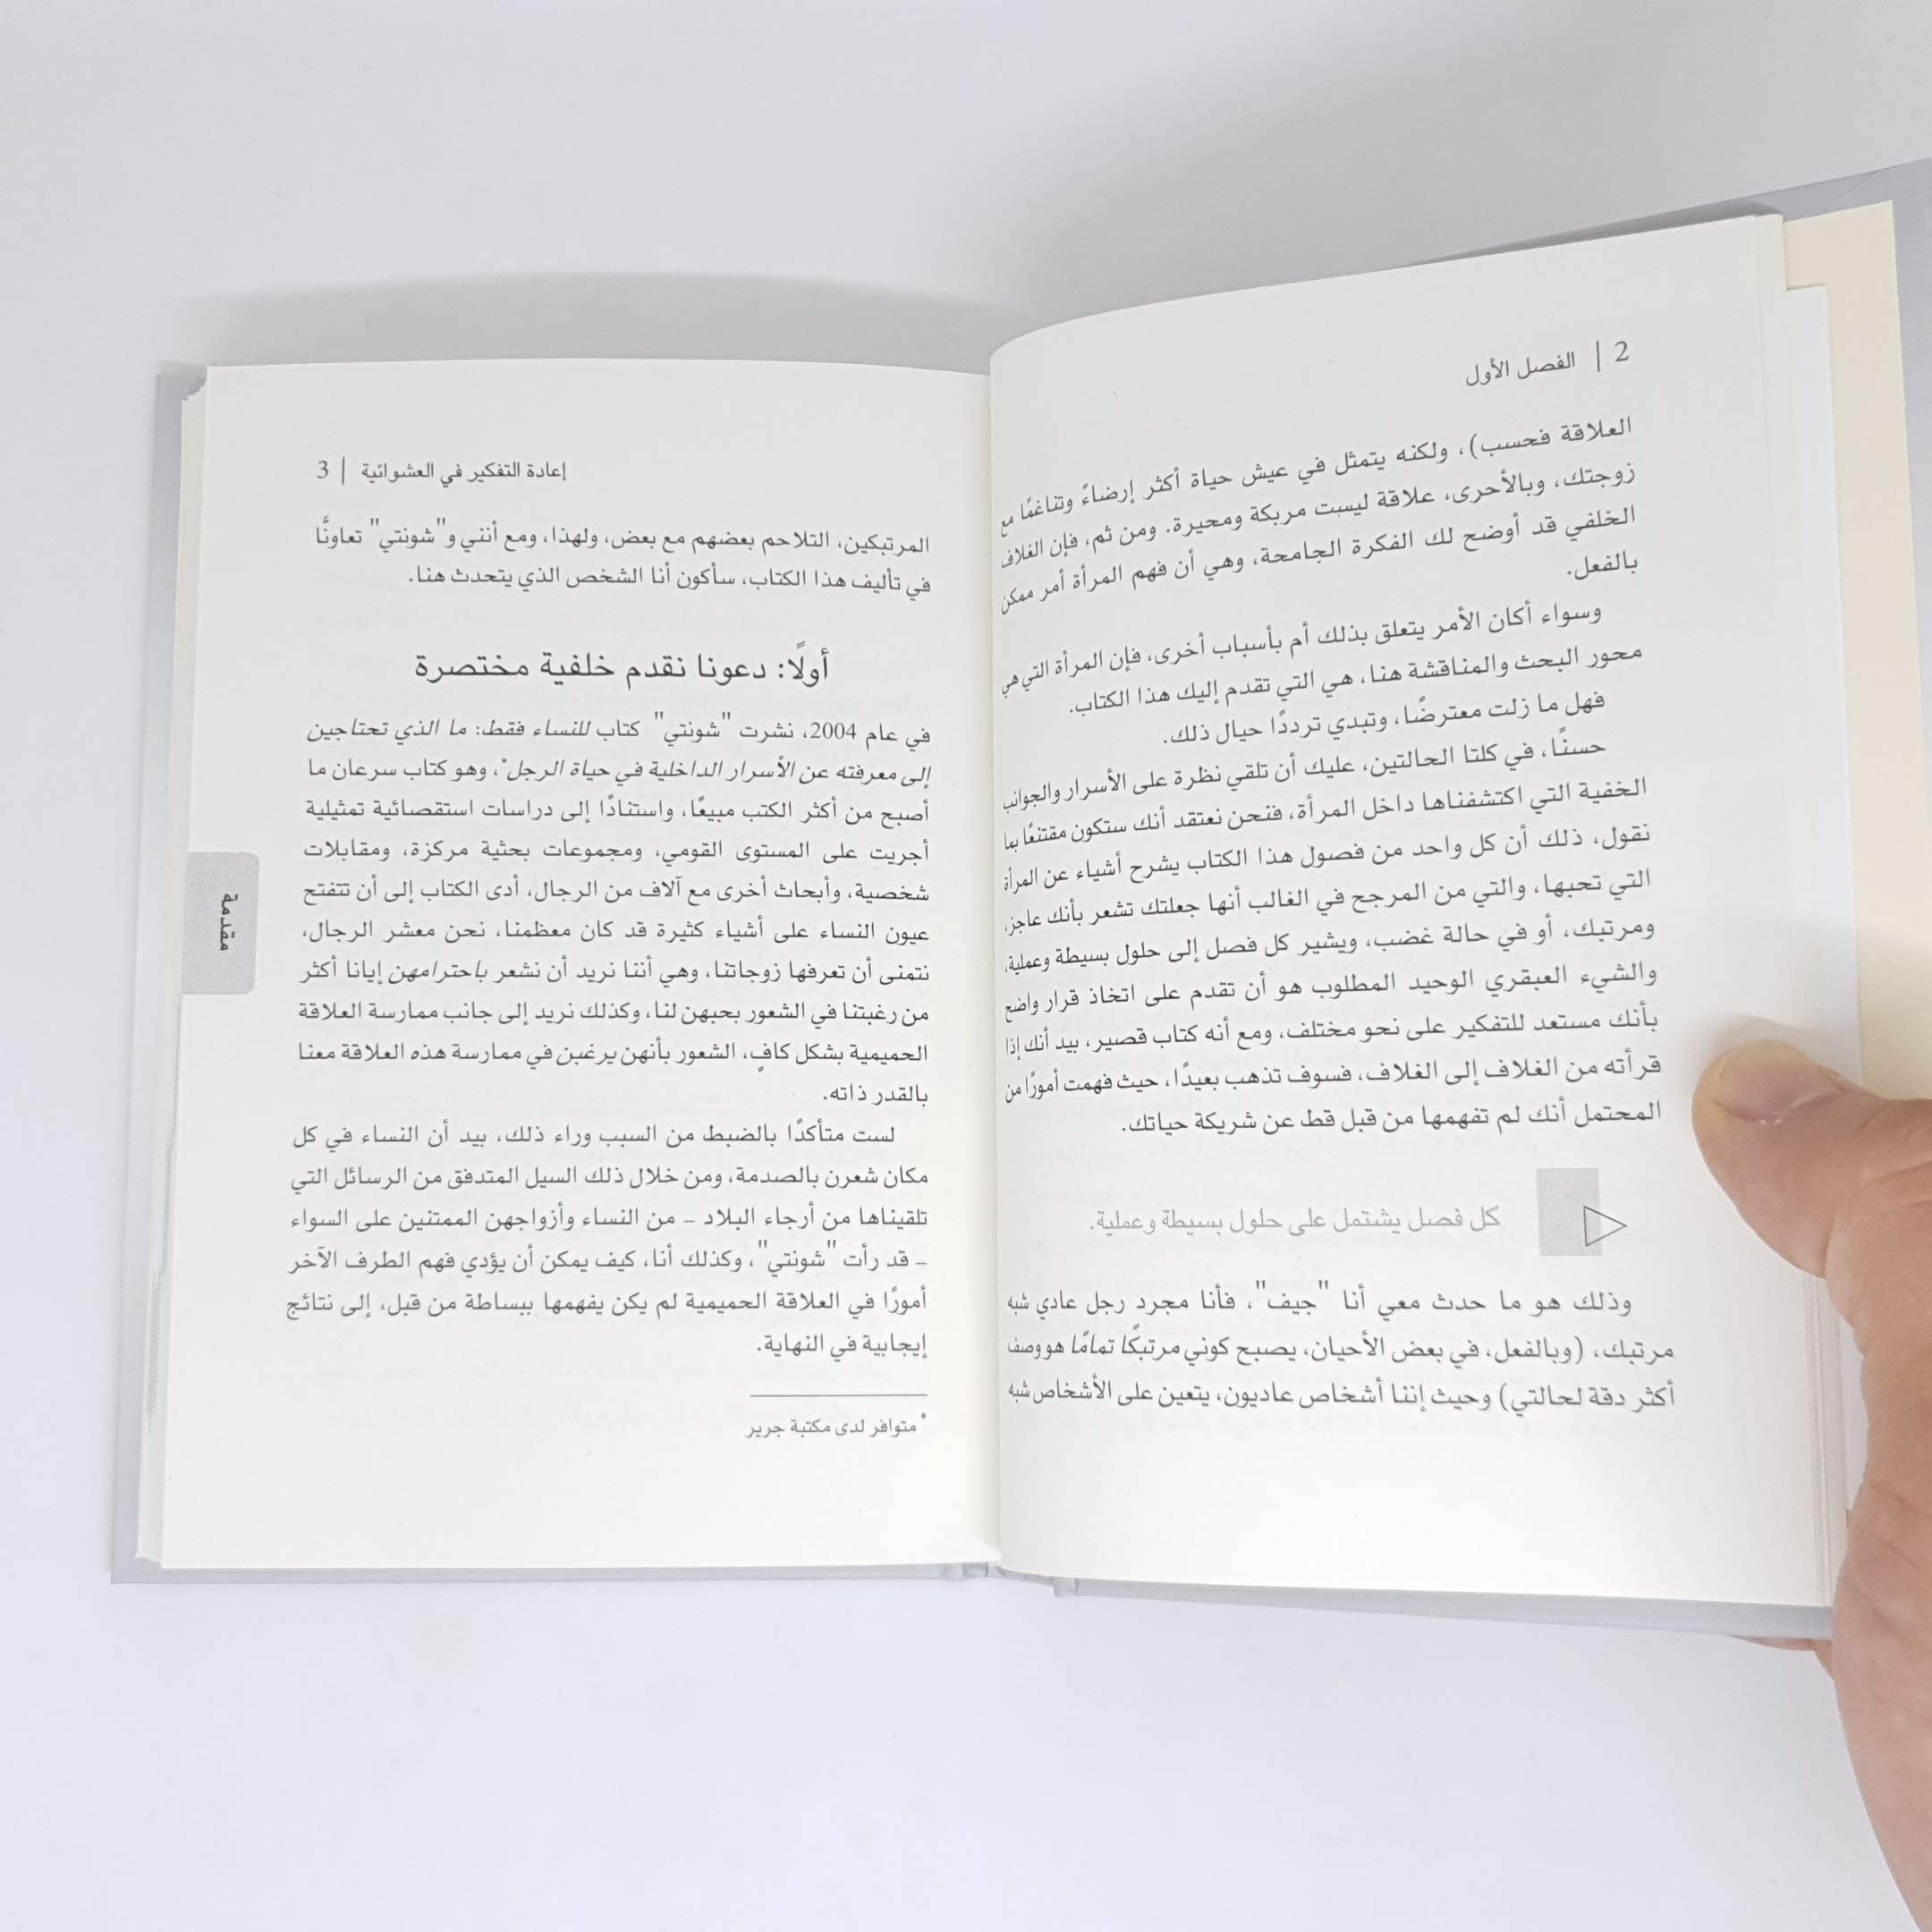 2 | الفصل الأول
العلاقة فحسب)، ولكنه يتمثل في عيش حياة أكثر إرضاءً وتناغمًا مع
زوجتك، وبالأحرى، علاقة ليست مربكة ومحيرة. ومن ثم، فإن الغلاف
الخلفي قد أوضح لك الفكرة الجامحة، وهي أن فهم المرأة أمر ممكن
بالفعل.
وسواء أكان الأمر يتعلق بذلك أم بأسباب أخرى، فإن المرأة التي هي
محور البحث والمناقشة هنا، هي التي تقدم إليك هذا الكتاب.
فهل ما زلت معترضًا، وتبدي ترددًا حيال ذلك.
حسنًا، في كلتا الحالتين، عليك أن تلقي نظرة على الأسرار والجوانب
الخفية التي اكتشفناها داخل المرأة، فنحن نعتقد أنك ستكون مقتنعًا بما
نقول، ذلك أن كل واحد من فصول هذا الكتاب يشرح أشياء عن المرأة
التي تحبها، والتي من المرجح في الغالب أنها جعلتك تشعر بأنك عاجز،
ومرتبك، أو في حالة غضب، ويشير كل فصل إلى حلول بسيطة وعملية،
والشيء العبقري الوحيد المطلوب هو أن تقدم على اتخاذ قرار واضح
بأنك مستعد للتفكير على نحو مختلف، ومع أنه كتاب قصير، بيد أنك إذا
قرأته من الغلاف إلى الغلاف، فسوف تذهب بعيدًا، حيث فهمت أمورًا من
المحتمل أنك لم تفهمها من قبل قط عن شريكة حياتك.
كل فصل يشتمل على حلول بسيطة وعملية.
وذلك هو ما حدث معي أنا "جيف"، فأنا مجرد رجل عادي شبه
مرتبك، (وبالفعل، في بعض الأحيان، يصبح كوني مرتبكًا تمامًا هو وصف
أكثر دقة لحالتي) وحيث إننا أشخاص عاديون، يتعين على الأشخاص شبه
إعادة التفكير في العشوائية | 3
المرتبكين، التلاحم بعضهم مع بعض، ولهذا، ومع أنني و"شونتي" تعاونَّا
في تأليف هذا الكتاب، سأكون أنا الشخص الذي يتحدث هنا.
أولًا: دعونا نقدم خلفية مختصرة
في عام 2004، نشرت "شونتي" كتاب للنساء فقط: ما الذي تحتاجين
إلى معرفته عن الأسرار الداخلية في حياة الرجل*، وهو كتاب سرعان ما
أصبح من أكثر الكتب مبيعًا، واستنادًا إلى دراسات استقصائية تمثيلية
أجريت على المستوى القومي، ومجموعات بحثية مركزة، ومقابلات
شخصية، وأبحاث أخرى مع آلاف من الرجال، أدى الكتاب إلى أن تتفتح
عيون النساء على أشياء كثيرة قد كان معظمنا، نحن معشر الرجال،
نتمنى أن تعرفها زوجاتنا، وهي أننا نريد أن نشعر باحترامهن إيانا أكثر
من رغبتنا في الشعور بحبهن لنا، وكذلك نريد إلى جانب ممارسة العلاقة
الحميمية بشكل كافٍ، الشعور بأنهن يرغبن في ممارسة هذه العلاقة معنا
بالقدر ذاته.
لست متأكدًا بالضبط من السبب وراء ذلك، بيد أن النساء في كل
مكان شعرن بالصدمة، ومن خلال ذلك السيل المتدفق من الرسائل التي
تلقيناها من أرجاء البلاد – من النساء وأزواجهن الممتنين على السواء
– قد رأت "شونتي"، وكذلك أنا، كيف يمكن أن يؤدي فهم الطرف الآخر
أمورًا في العلاقة الحميمية لم يكن يفهمها ببساطة من قبل، إلى نتائج
إيجابية في النهاية.
* متوافر لدى مكتبة جرير
مقدمة